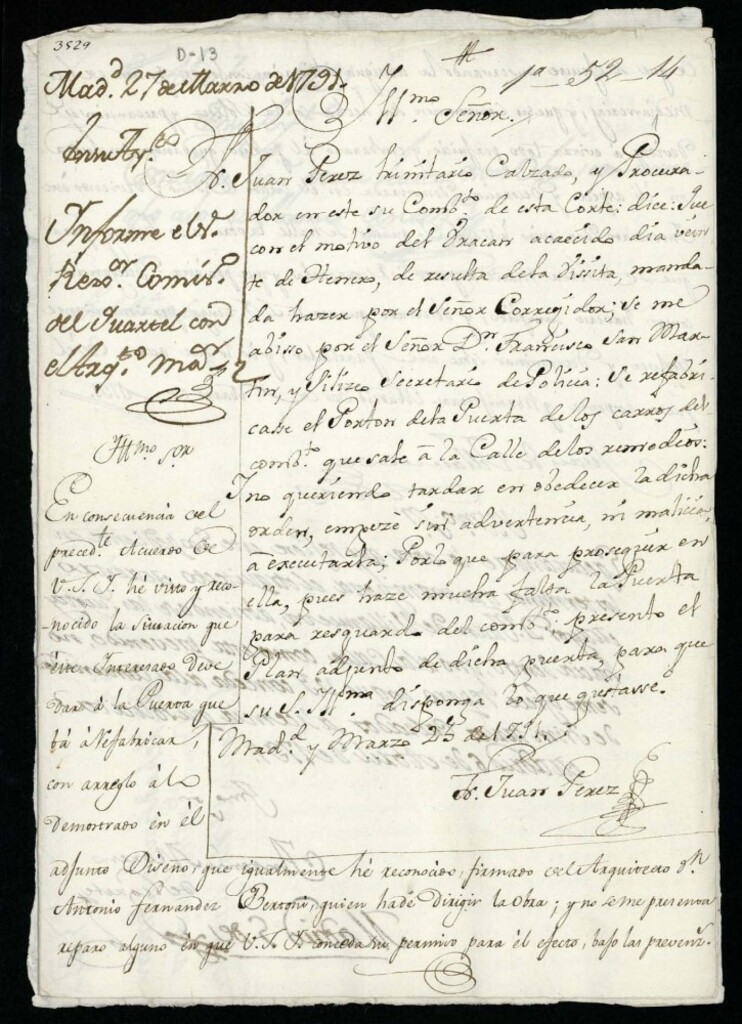 3529
D-13
1ª 52 14
Mad.d 27 de Marzo de 1791.
En su Ay.to
Informe el S.r
Rexo.or Comis.o
del Quartel con
el Arq.to mayr
Yll.mo Señor.
Fr. Juan Perez trinitario Calzado, y Procura-
dor en este su Comb.to de esta Corte: dice: Que
con el motivo del Uracan acaecido dia vein
te de Henero, de resulta de la Vissita, manda-
da hazer por el Señor Corregidor; se me
abisso por el Señor Dn. Francisco San Mar-
tin, y Silizeo Secretario de Policia; se refabri-
casse el Porton de la Puerta de los carros del
comb.to que sale à la Calle de los remedios:
Y no queriendo tardar en obedecer la dicha
orden, empezè sin advertencia, ni malicia
à executarla; Por lo que para proseguir en
ella, pues haze mucha falta la Puerta
para resguardo del comb.to presento el
Plan adjunto de dicha puerta, para que
su S. Yll.ma disponga lo que gustasse.
Mad.d y Marzo 26 de 1791.
Fr. Juan Perez
Yll.mo S.or
En consecuencia del
preced.te Acuerdo de
V.S.I. hé visto y reco-
nocido la situacion que
éste Interesado deve
dar á la Puerta que
bá á Refabricar,
con arreglo ál
Demostrado en él
adjunto Diseño, que igualmente hé reconocido, firmado del Arquitecto Dn.
Antonio Fernandez Bertoni, quien ha de Dirigir la Obra; y no se me presenta
reparo alguno én que V.S.I. conceda su permiso para él efecto, bajo las prevenz.s